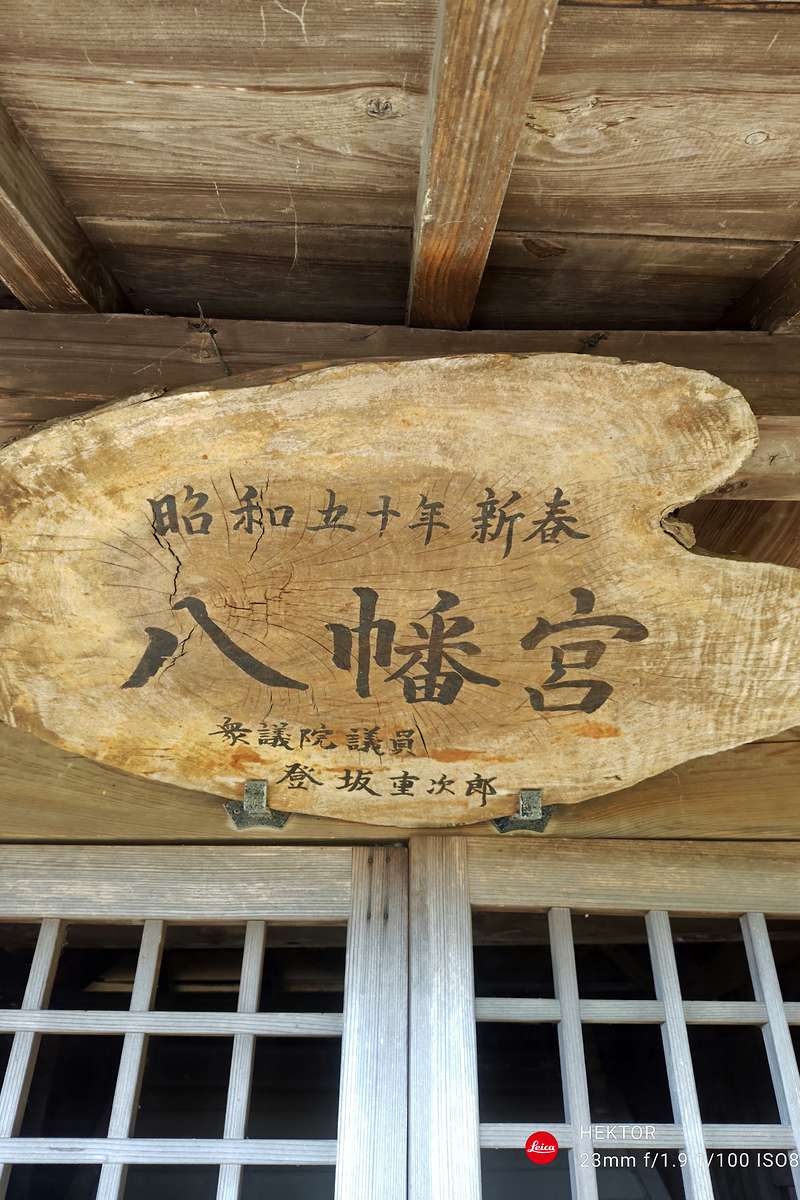 昭和五十年新春
八幡宮
衆議院議員
登坂重次郎
Leica
HEKTOR
23mm f/1.9 1/100 ISO8